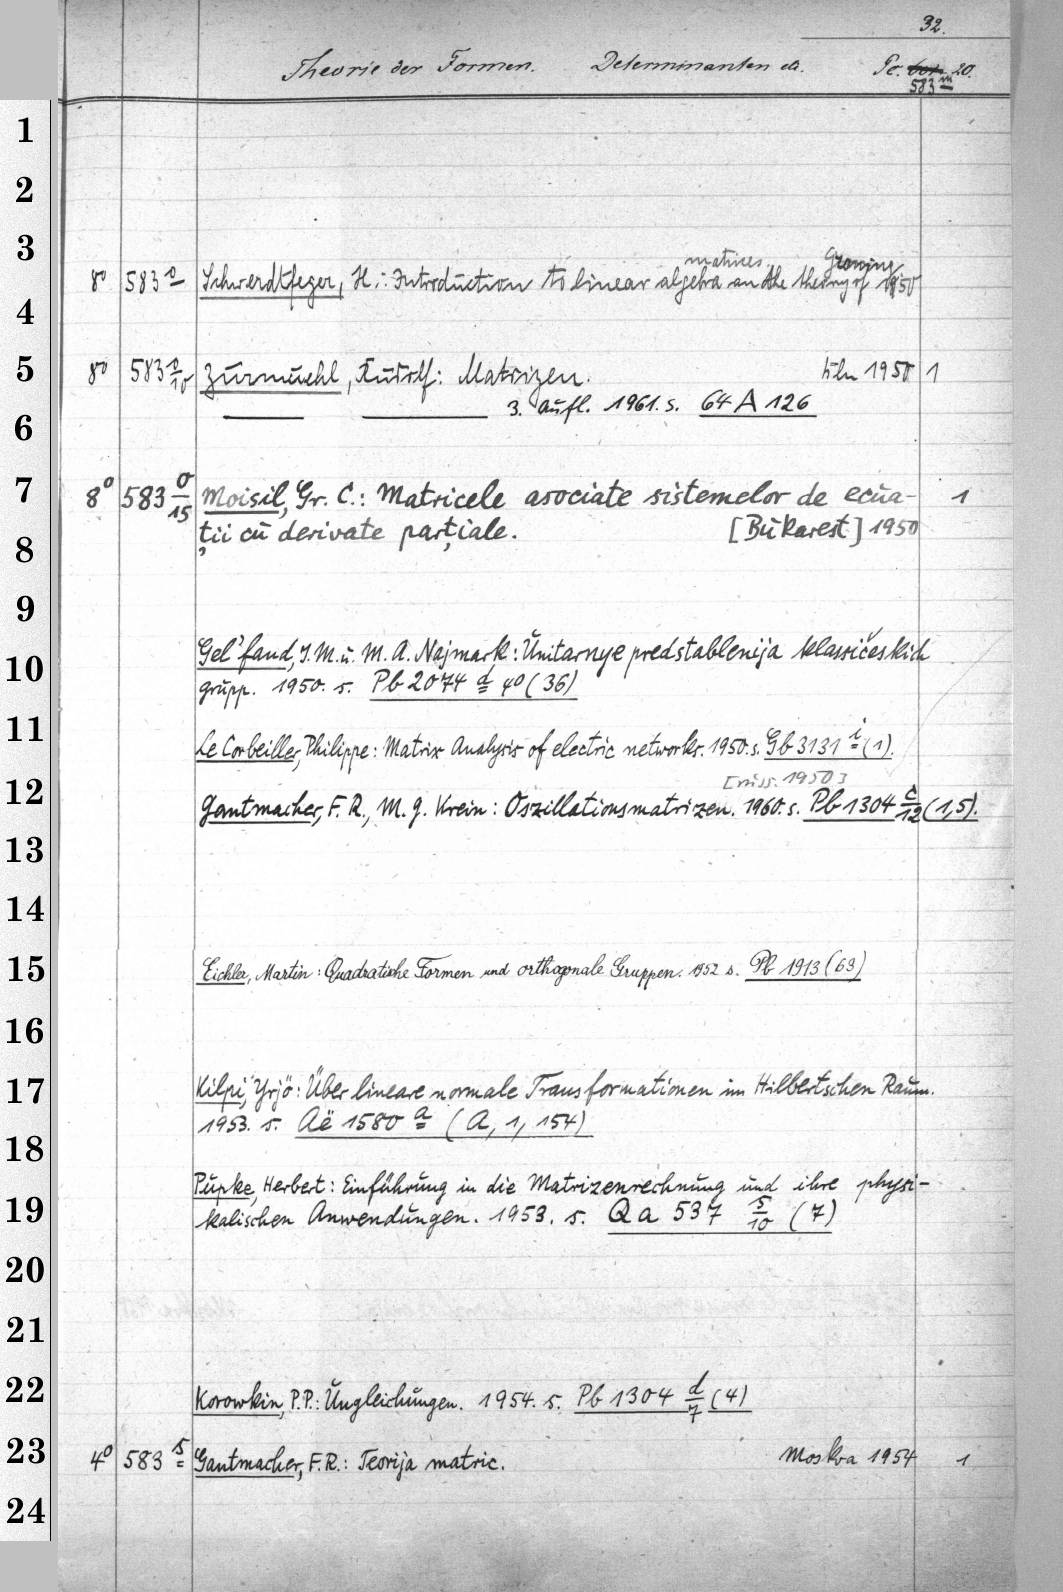 32.
Theorie der Formen. Determinanten etc. Pc. 20.
583 m
1
2
3
matrices. Groning
8° 583 o Schwerdtfeger, H.: Introduction to linear algebra an the theory of 1950
4
5 8° 583 o/10 Zurmuehl, Rudolf: Matrizen. Bln 1950 1
3. Aufl. 1961. s. 64 A 126
6
7 8° 583 o/15 Moisil, Gr. C.: Matricele asociate sistemelor de ecua- 1
ții cu derivate parțiale. [Bukarest] 1950
8
9
Gel'fand, I. M. u. M. A. Najmark: Unitarnye predstablenija klassičeskich
10
grupp. 1950. s. Pb 2074 d 4° (36)
11
Le Corbeiller, Philippe: Matrix Analysis of electric networks. 1950. s. Gb 3131 i (1).
[russ. 1950]
12
Gantmacher, F. R., M. G. Krein: Oszillationsmatrizen. 1960. s. Pb 1304 c/12 (1,5).
13
14
15 Eichler, Martin: Quadratische Formen und orthogonale Gruppen. 1952 s. Pb 1913 (63)
16
17 Kilpi, Yrjö: Über lineare normale Transformationen im Hilbertschen Raum.
1953. s. Aë 1580 a (A, 1, 154)
18
Pupke, Herbert: Einführung in die Matrizenrechnung und ihre physi-
19 kalischen Anwendungen. 1953. s. Qa 537 s/10 (7)
20
21
22 Korowkin, P.P.: Ungleichungen. 1954. s. Pb 1304 d/7 (4)
23 4° 583 s Gantmacher, F.R.: Teorija matric. Moskva 1954 1
24